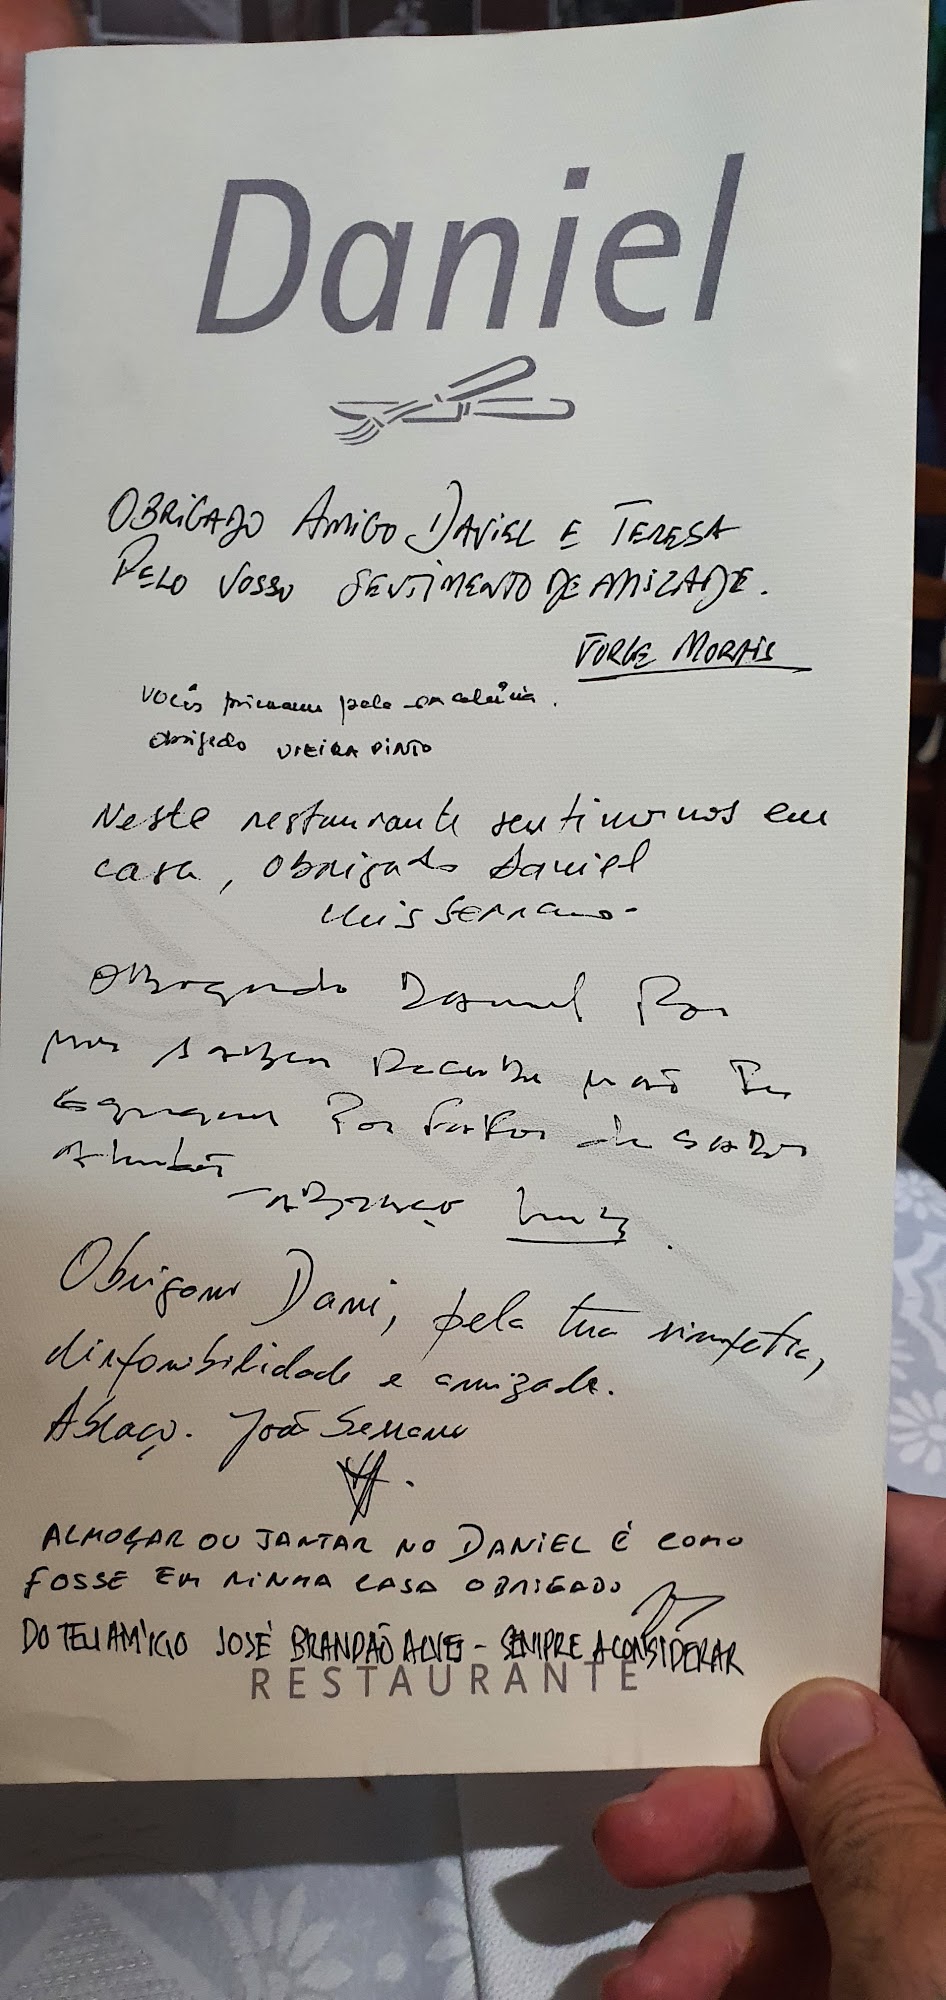 Daniel
OBRIGADO AMIGO DANIEL E TERESA
PELO VOSSO SENTIMENTO DE AMIZADE.
JORGE MORAIS
Vocês primam pela excelência.
Obrigado VIEIRA PINTO
Neste restaurante sentimonos em
casa, Obrigado Daniel
Luis Serrano
Obrigado Daniel Por
nos saber receber não
Por
Abraço Luis
Obrigado Dani, pela tua simpatia,
disponibilidade e amizade.
Abraço. João Serrano
ALMOÇAR OU JANTAR NO DANIEL É COMO
FOSSE EM MINHA CASA OBRIGADO
DO TEU AMIGO JOSÉ BRANDÃO ALVES - SEMPRE A CONSIDERAR
RESTAURANTE